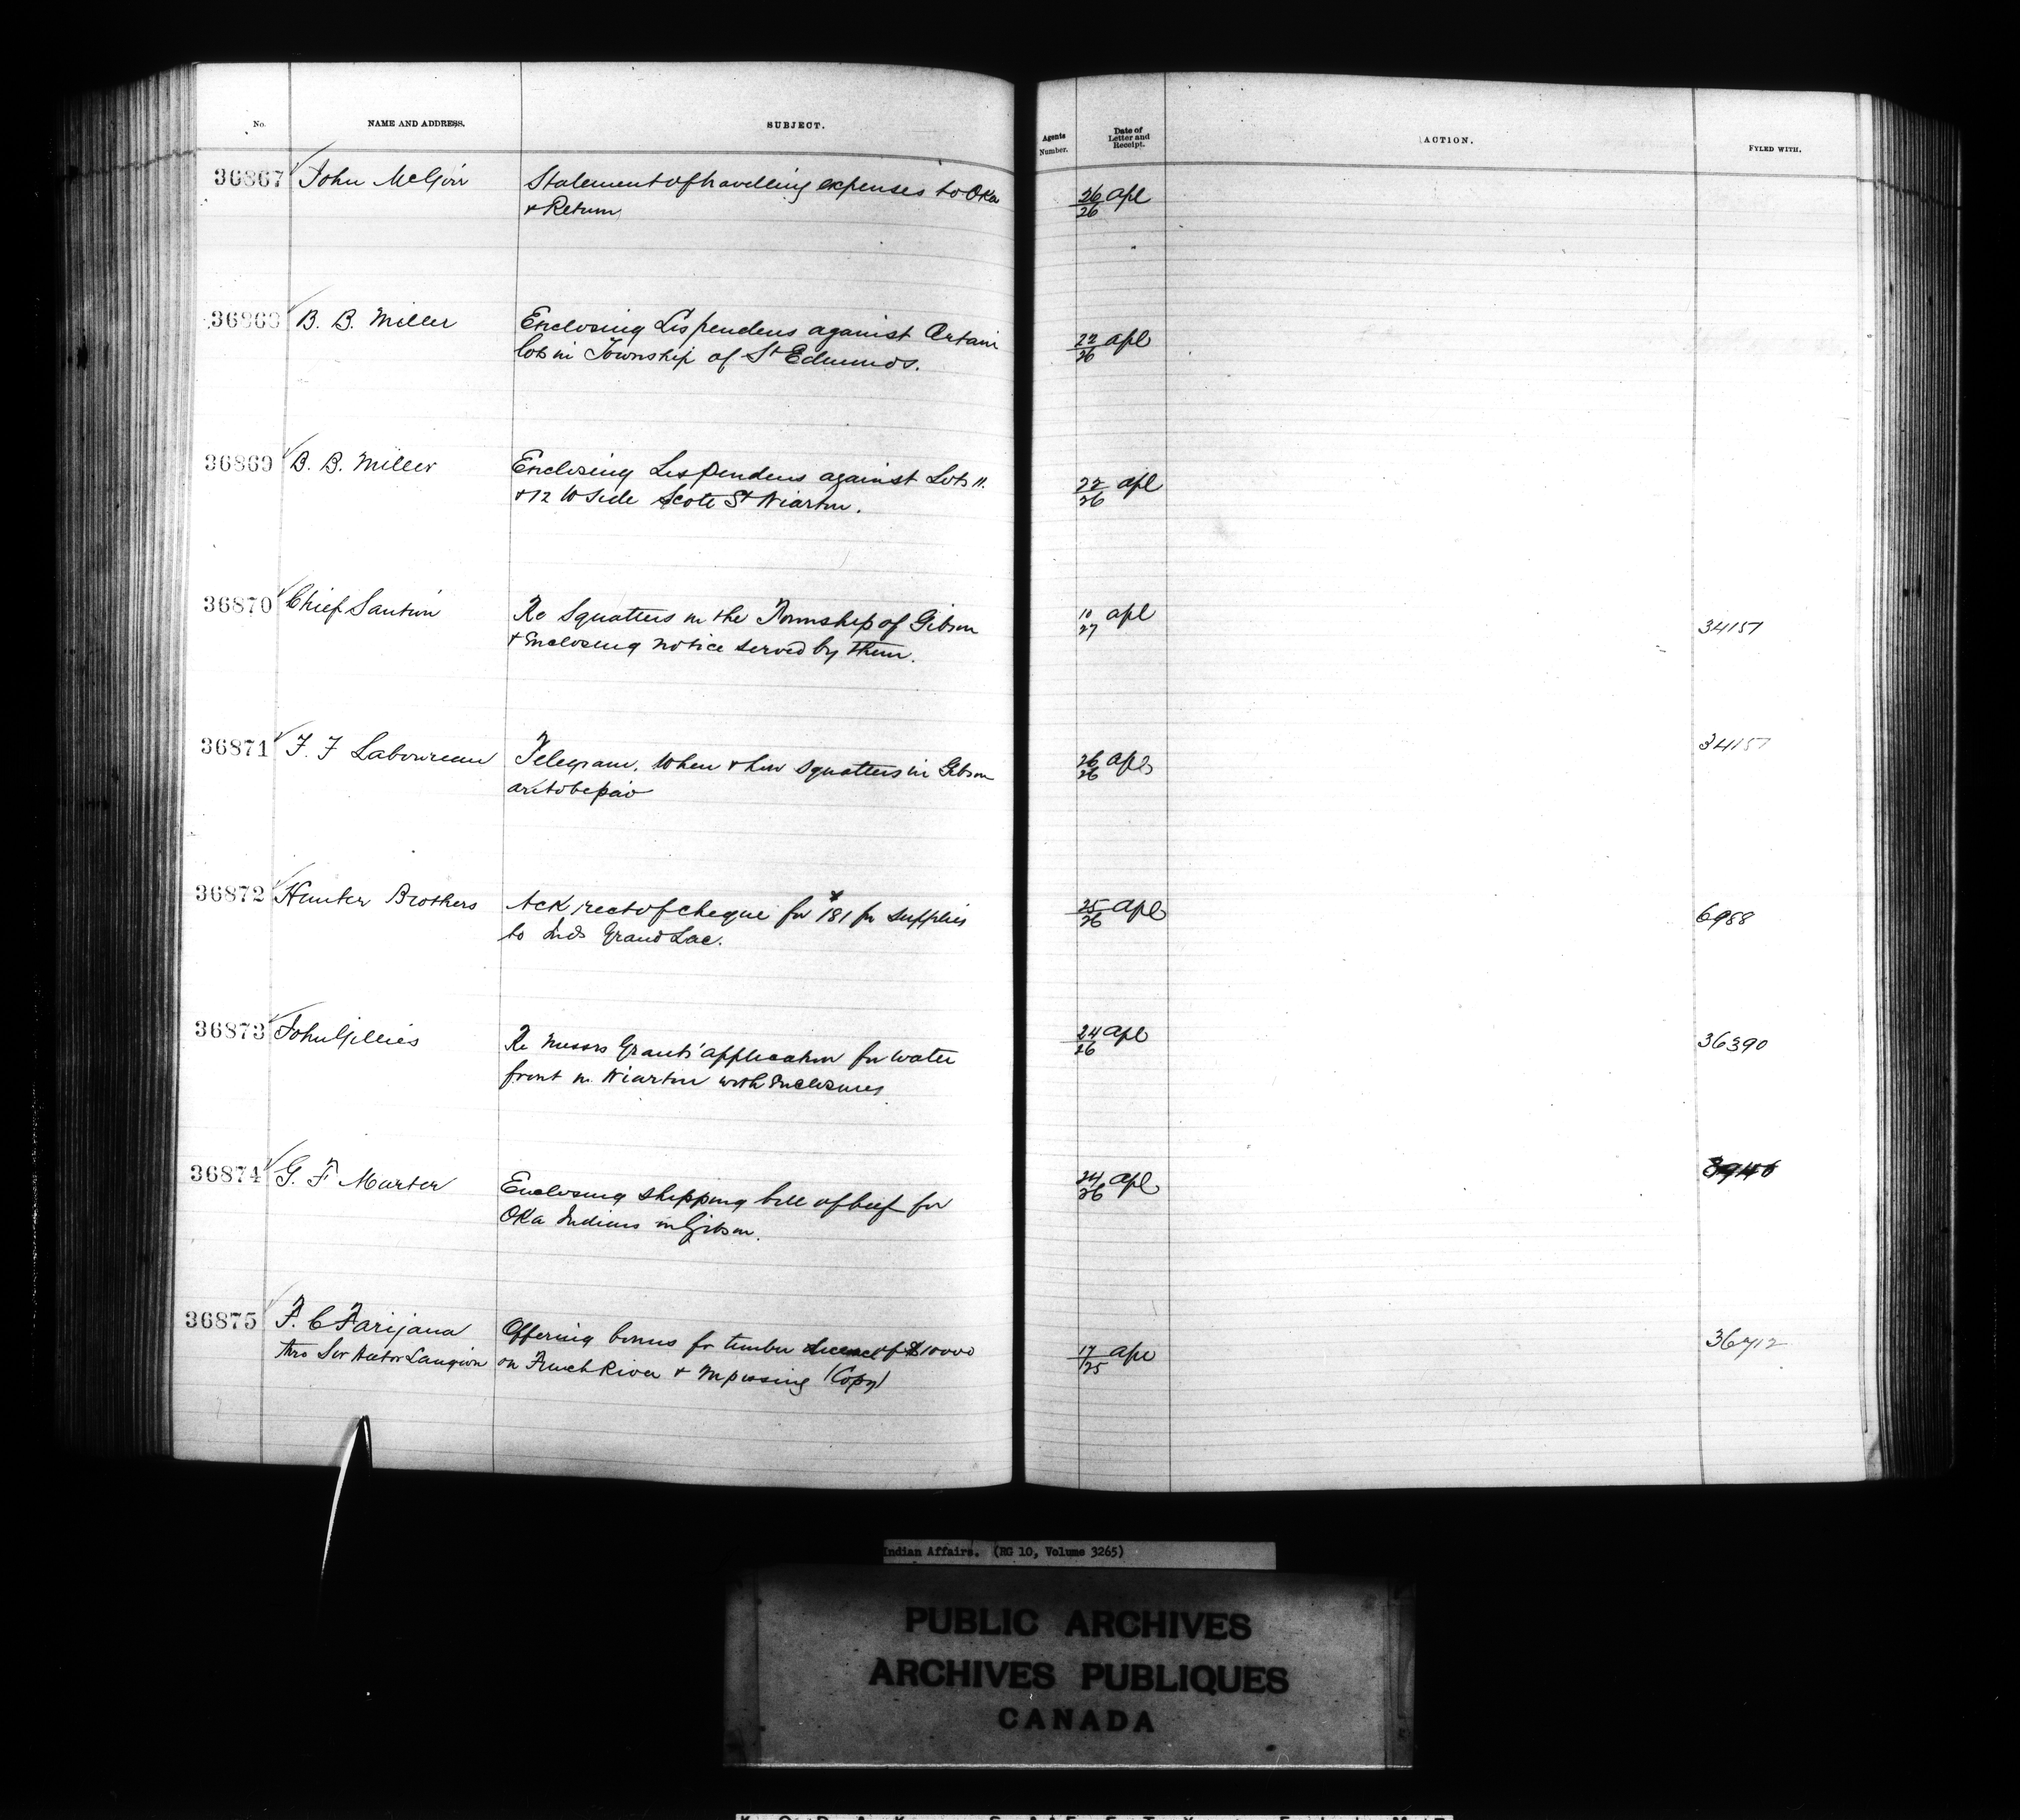 No. NAME AND ADDRESS. SUBJECT. Agents Number. Date of Letter and Receipt. ACTION. FYLED WITH.
36867 John McGirr Statement of travelling expenses to Oka
& Return
26/26 Apl
36868 B. B. Miller Enclosing Lis pendens against Certain
lots in Township of St Edmunds.
22/26 Apl
36869 B. B. Miller Enclosing Lis Pendens against Lots 11.
& 12 W Side Scott St Wiarton.
22/26 Apl
36870 Chief Sautin Re Squatters in the Township of Gibson
& Enclosing notice served by them.
10/27 Apl 34157
36871 F. F Laboureau Telegram. When & how Squatters in Gibson
are to be paid
26/26 Apl 34157
36872 Hunter Brothers Ack rect of cheque for $181 for supplies
to Inds Grand Lac.
25/26 Apl 6988
36873 John Gillies Re Messrs Grants' application for water
front in Wiarton with Enclosures
24/26 Apl 36390
36874 G. F Marter Enclosing shipping bill of beef for
Oka Indians in Gibson.
24/26 Apl 8946
36875 F. C Farijana Offering bonus for timber License of $10000
thro Sir Hector Langevin on French River & Nipissing (Copy)
17/25 Apl 36712
Indian Affairs. (RG 10, Volume 3265)
PUBLIC ARCHIVES
ARCHIVES PUBLIQUES
CANADA